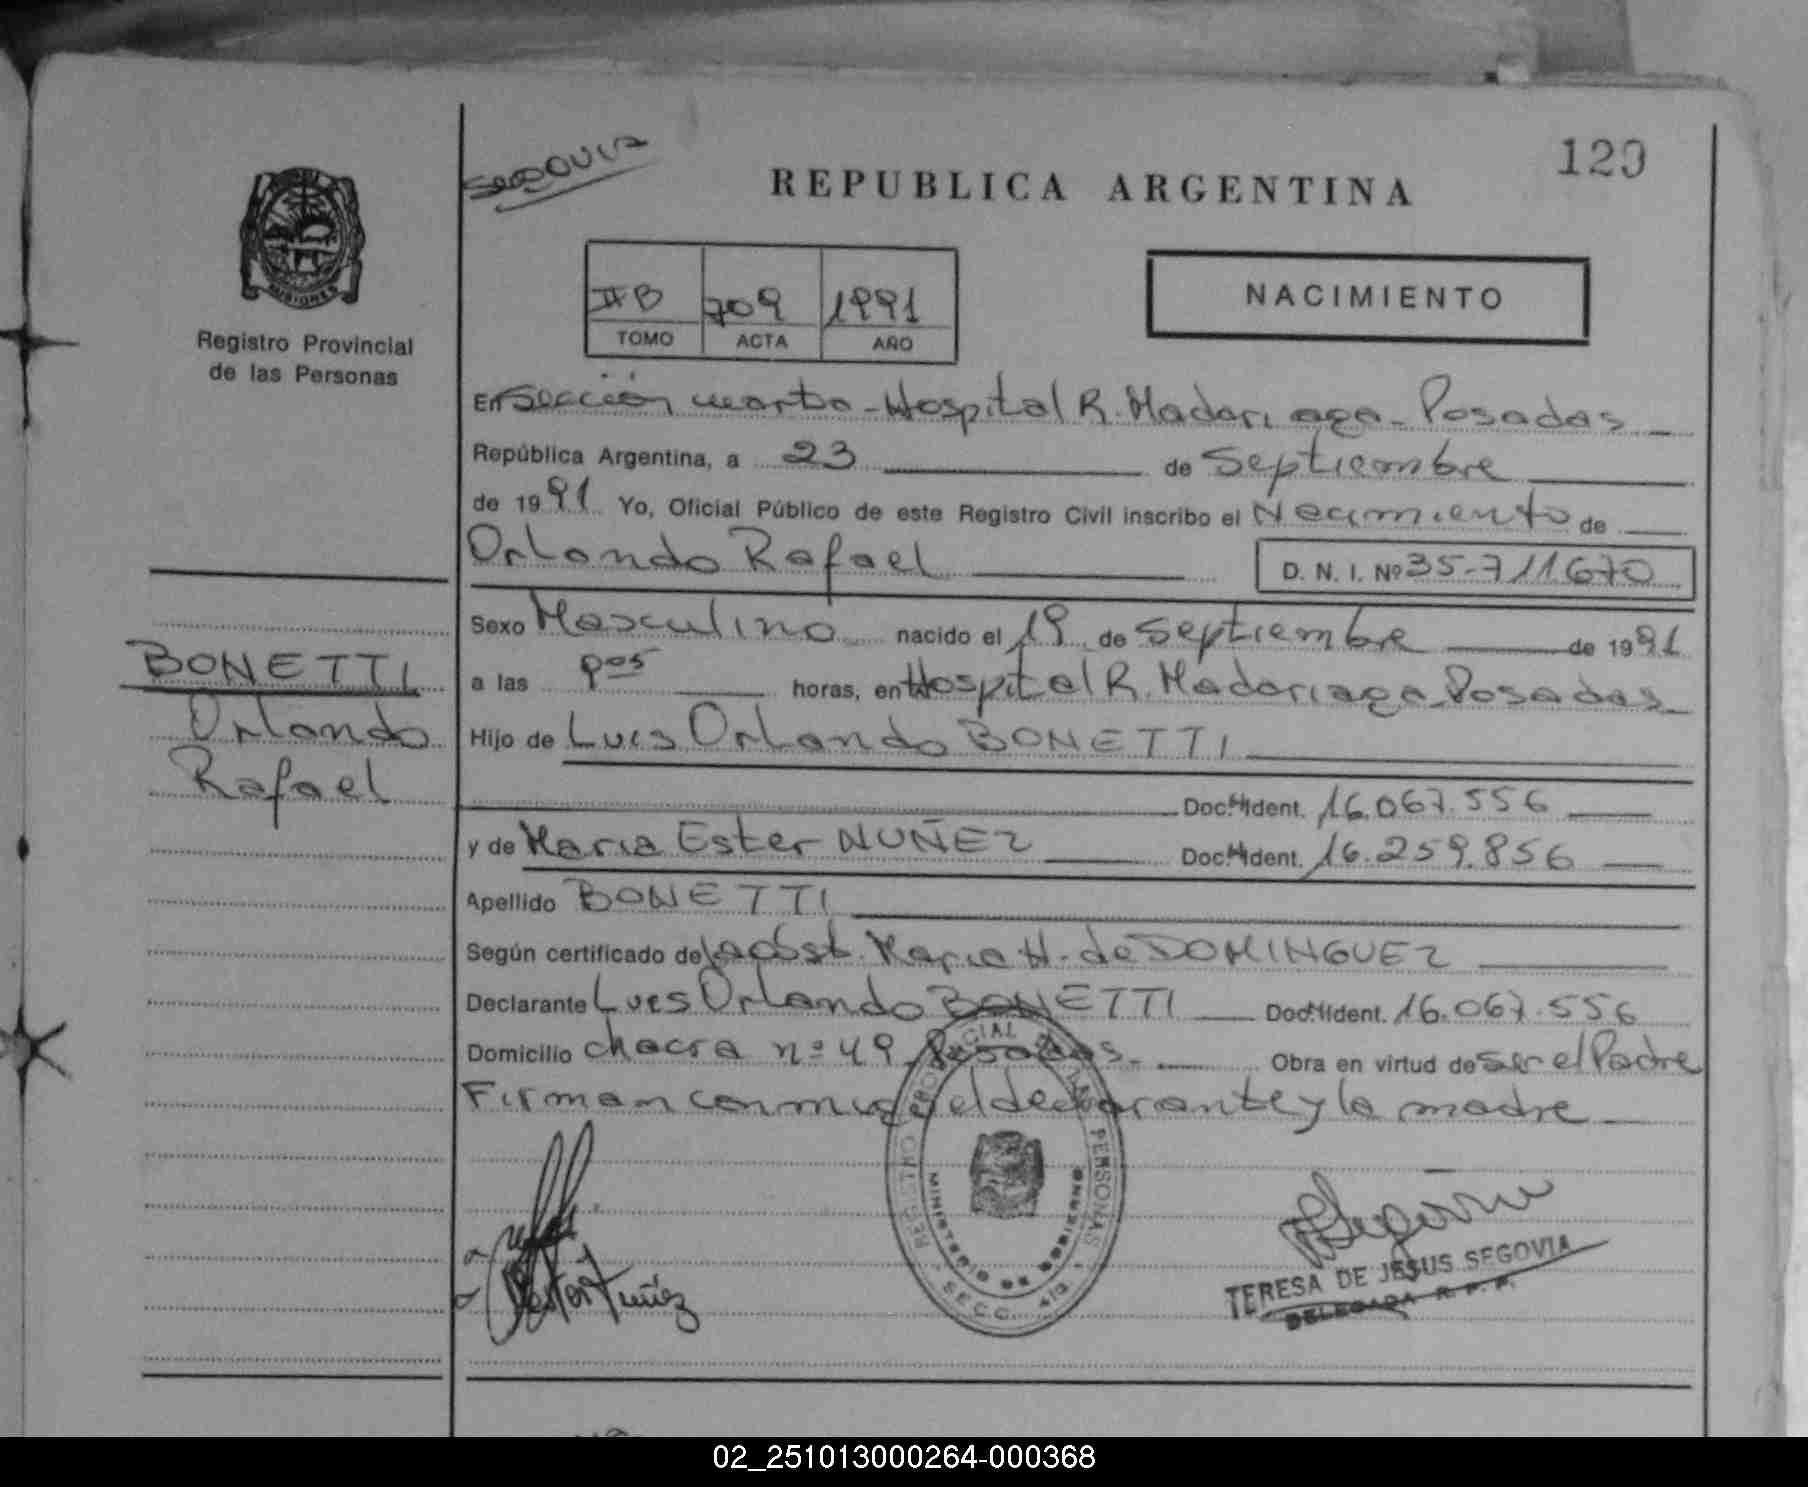 SEGOVIA
REPUBLICA ARGENTINA
129
MISIONES
Registro Provincial
de las Personas
IIB 709 1991
TOMO ACTA AÑO
NACIMIENTO
En Sección cuarta - Hospital R. Madariaga - Posadas
República Argentina, a 23 de Septiembre
de 1991 Yo, Oficial Público de este Registro Civil inscribo el Nacimiento de
Orlando Rafael
D. N. I. Nº 35.711.670
Sexo Masculino nacido el 19 de Septiembre de 1991
a las horas, en Hospital R. Madariaga - Posadas
Hijo de Luis Orlando BONETTI
Doc. Ident. 16.067.556
y de Maria Ester NUÑEZ Doc. Ident. 16.259.856
Apellido BONETTI
Según certificado de la obst. Maria H. de DOMINGUEZ
Declarante Luis Orlando BONETTI Doc. Ident. 16.067.556
Domicilio chacra nº 49 Posadas Obra en virtud de ser el Padre
Firman conmigo el declarante y la madre
BONETTI
Orlando
Rafael
REGISTRO PROVINCIAL DE LAS PERSONAS
MINISTERIO DE GOBIERNO
SECC. 4ta.
Ester Nuñez
Segovia
TERESA DE JESUS SEGOVIA
DELEGADA R. P. P.
02_251013000264-000368